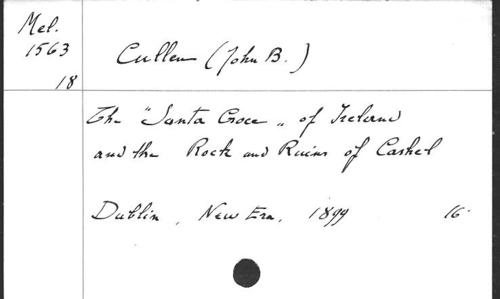 Mel.
1563
18
Cullen (John B.)
The "Santa Croce" of Ireland
and the Rock and Ruins of Cashel
Dublin, New Era, 1899 16°